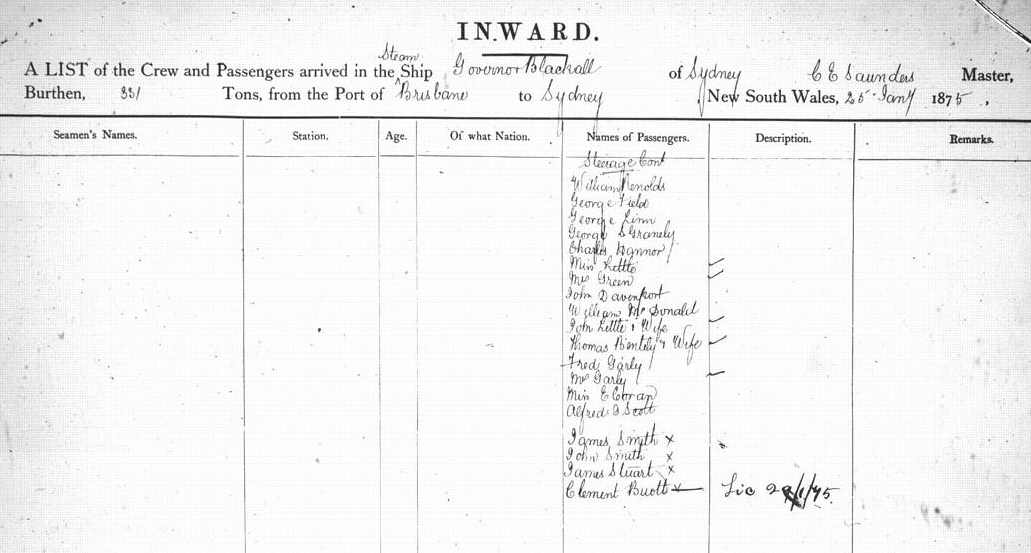 INWARD.
Steam
A LIST of the Crew and Passengers arrived in the Ship Governor Blackall of Sydney C E Saunders Master,
Burthen, 331 Tons, from the Port of Brisbane to Sydney New South Wales, 25 Jany 1875,
Seamen's Names. Station. Age. Of what Nation. Names of Passengers. Description. Remarks.
Steerage Cont
William Renolds
George Field
George Linn
George S
Charles
Miss Kettle
Mrs Green
John Davenport
William McDonald
John Little & Wife
Thomas & Wife
Fred Garly
Mrs Garly
Miss E
Alfred J Scott
James Smith x
John Smith x
James Stuart x
Clement x